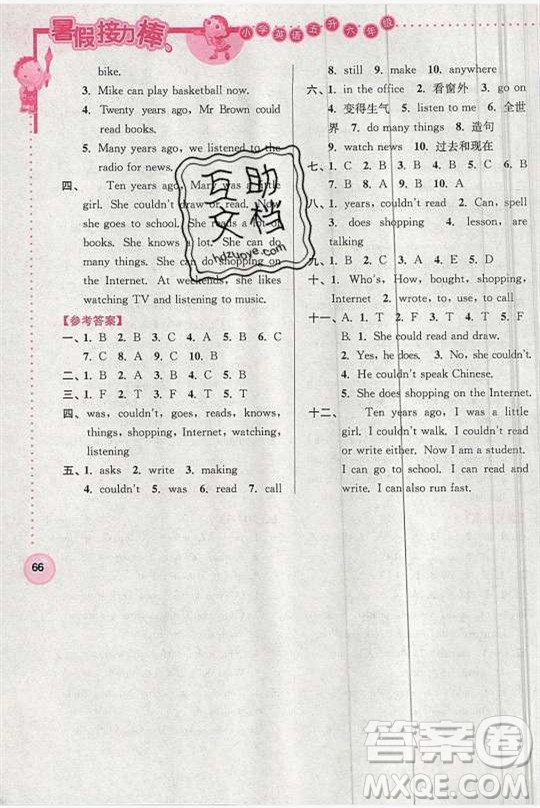 暑假接力棒
小学英语五升六年级
bike.
3. Mike can play basketball now.
4. Twenty years ago, Mr Brown could
read books.
5. Many years ago, we listened to the
radio for news.
四、 Ten years ago, Mary was a little
girl. She couldn't draw or read. Now
she goes to school. She reads and
knows a lot. She can do shopping on
the Internet. At weekends, she likes
watching TV and listening to music.
【参考答案】
一、1. B 2. C 3. C 4. A 5. B 6. C
7. C 8. B 9. A 10. C
二、1. B 2. A 3. B 4. C 5. A
三、1. F 2. F 3. T 4. F 5. T
四、was, couldn't, goes, reads, knows,
things, shopping, Internet, watching,
listening
五、1. asks 2. write 3. making
4. couldn't 5. was 6. read 7. call
8. still 9. make 10. anywhere
六、1. in the office 2. 看窗外 3. go on
4. 变得生气 5. listen to me 6. 全世
界 7. do many things 8. 造句
9. watch news 10. 过去和现在
七、1. C 2. B 3. B 4. C 5. A
八、1. couldn't, read, looked 2. Can, spell
3. does shopping 4. lesson, are
talking
九、1. C 2. D 3. B 4. A 5. E
十、1. Who's, How, bought, shopping,
Internet 2. wrote, to, use, by
十一、A. T F F T F
B. 1. She could read and draw.
2. Yes, he does. 3. No, she couldn't.
4. He couldn't speak Chinese.
5. She does shopping on the Internet.
十二、 Ten years ago, I was a little
girl. I couldn't walk. I couldn't read
or write. Now I am a student.
I can go to school. I can read and
write. I can also run fast.
66
互助文档
hdzuoye.com
答案圈
MXQE.COM